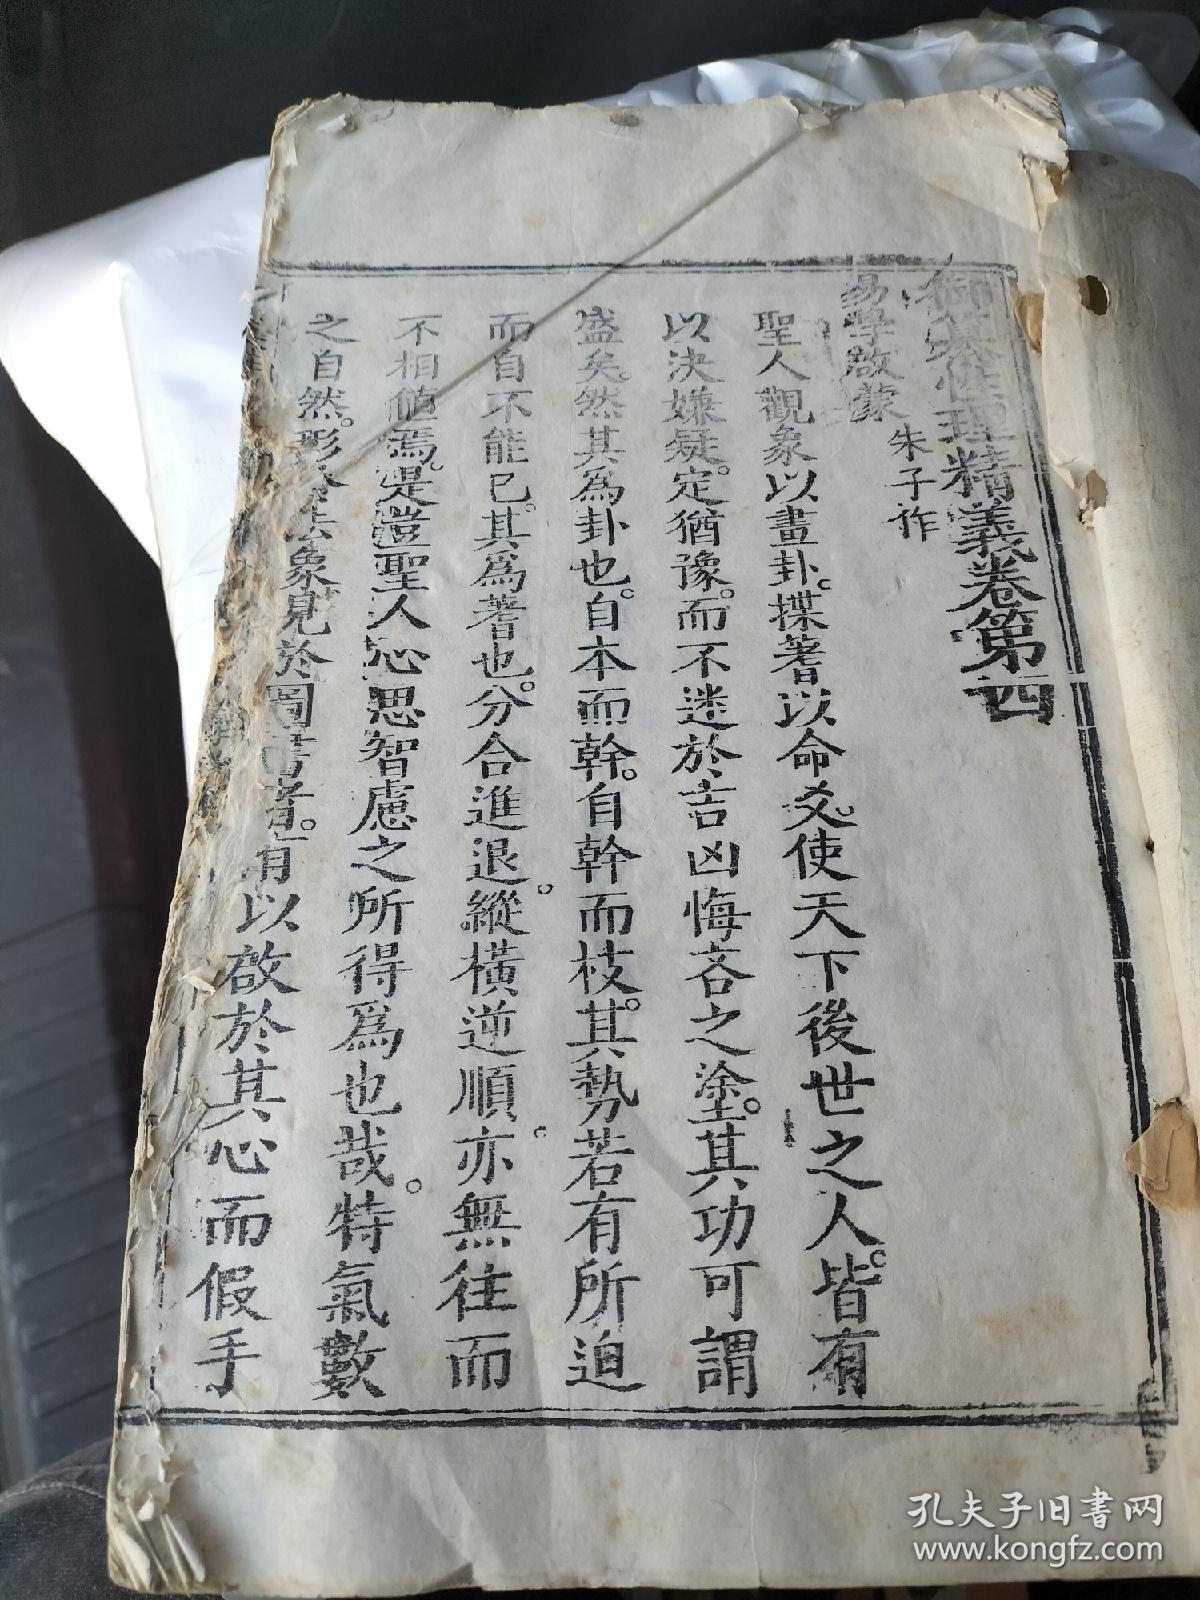 御纂性理精義卷第四
易學啟蒙 朱子作
聖人觀象以畫卦。揲蓍以命爻。使天下後世之人。皆有
以決嫌疑。定猶豫。而不迷於吉凶悔吝之塗。其功可謂
盛矣。然其為卦也。自本而幹。自幹而枝。其勢若有所迫
而自不能已。其為蓍也。分合進退。縱橫逆順。亦無往而
不相值焉。是豈聖人心思智慮之所得為也哉。特氣數
之自然。形於法象見於圖書者。有以啟於其心而假手
孔夫子旧书网
www.kongfz.com